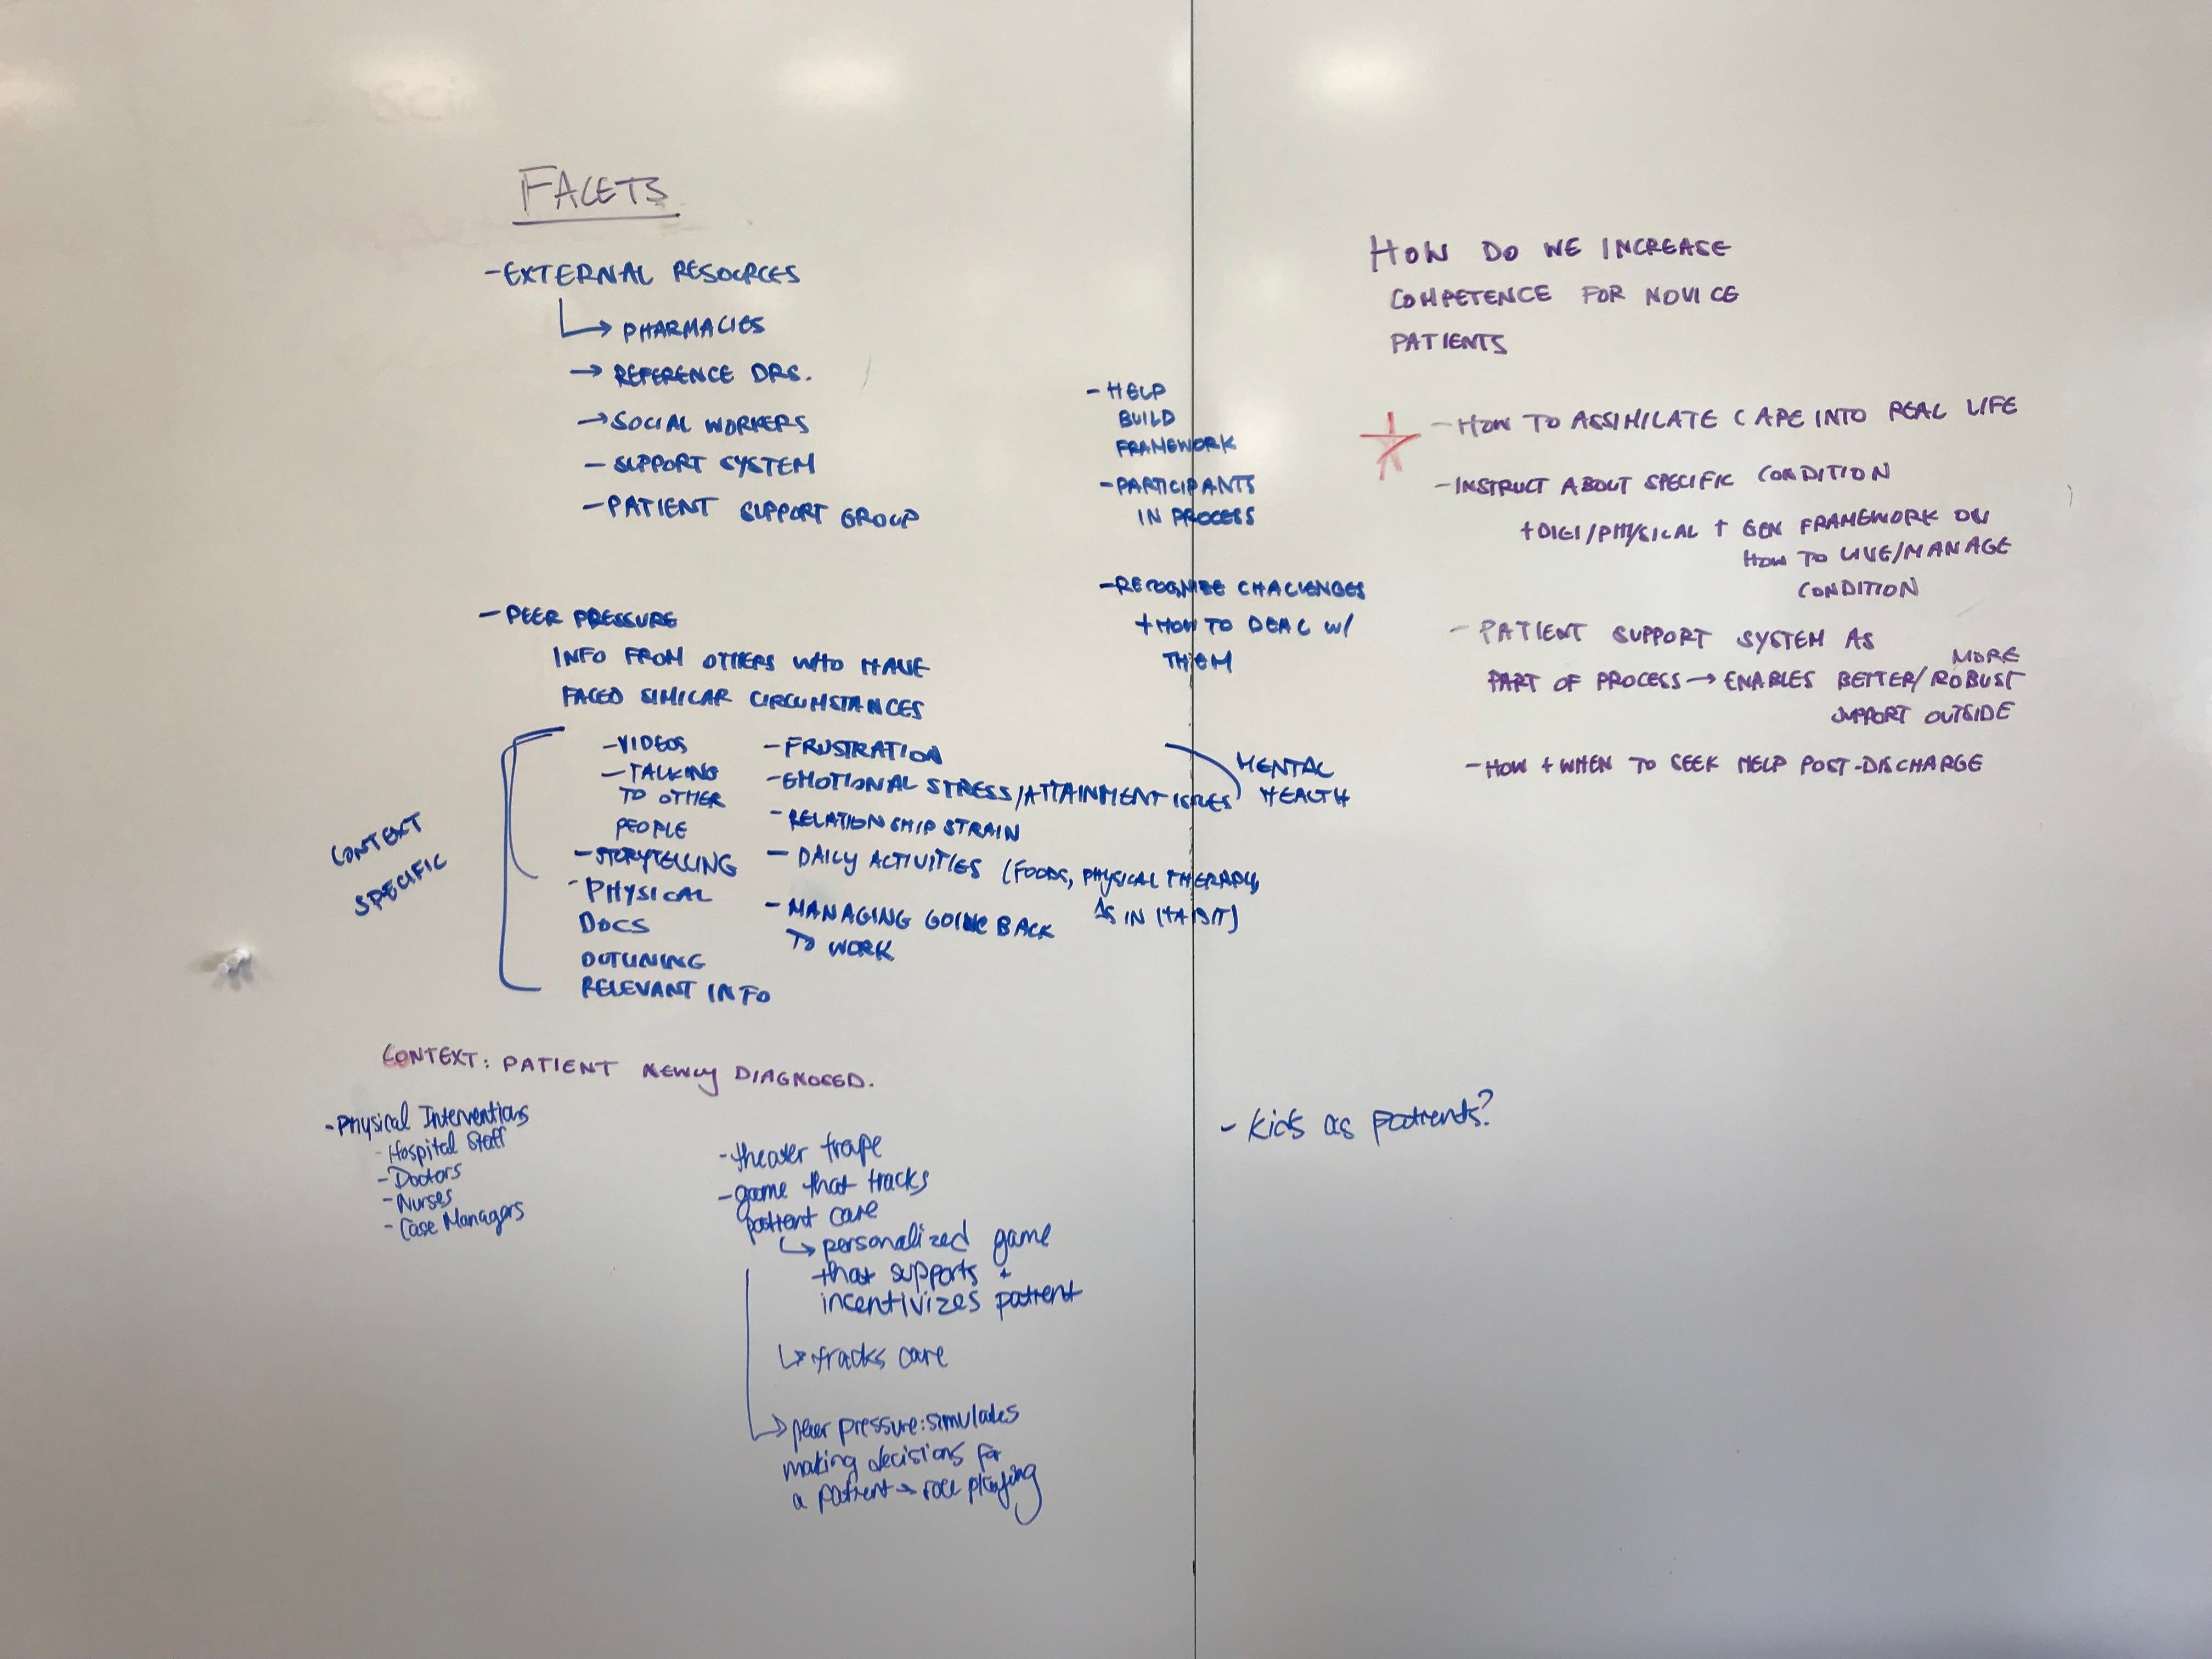 FACETS
-EXTERNAL RESOURCES
→ PHARMACIES
→ REFERENCE DRS.
→ SOCIAL WORKERS
- SUPPORT SYSTEM
- PATIENT SUPPORT GROUP
- HELP
BUILD
FRAMEWORK
- PARTICIPANTS
IN PROCESS
- RECOGNIZE CHALLENGES
+ HOW TO DEAL W/
THEM
- PEER PRESSURE
INFO FROM OTHERS WHO HAVE
FACED SIMILAR CIRCUMSTANCES
CONTEXT
SPECIFIC
- VIDEOS
- TALKING
TO OTHER
PEOPLE
- STORYTELLING
- PHYSICAL
DOCS
OUTLINING
RELEVANT INFO
- FRUSTRATION
- EMOTIONAL STRESS/ATTAINMENT ISSUES
- RELATIONSHIP STRAIN
- DAILY ACTIVITIES (FOODS, PHYSICAL THERAPY,
AS IN HABIT)
- MANAGING GOING BACK
TO WORK
MENTAL
HEALTH
CONTEXT: PATIENT NEWLY DIAGNOSED.
- Physical Interventions
- Hospital Staff
- Doctors
- Nurses
- Case Managers
- theater
- game that tracks
patient care
↳ personalized game
that supports +
incentivizes patient
↳ tracks care
→ peer pressure: simulates
making decisions for
a patient → role playing
HOW DO WE INCREASE
COMPETENCE FOR NOVICE
PATIENTS
- HOW TO ASSIMILATE CARE INTO REAL LIFE
- INSTRUCT ABOUT SPECIFIC CONDITION
+ DIGI/PHYSICAL + GEN FRAMEWORK ON
HOW TO LIVE/MANAGE
CONDITION
- PATIENT SUPPORT SYSTEM AS
PART OF PROCESS → ENABLES BETTER/MORE ROBUST
SUPPORT OUTSIDE
- HOW + WHEN TO SEEK HELP POST-DISCHARGE
- Kids as patients?